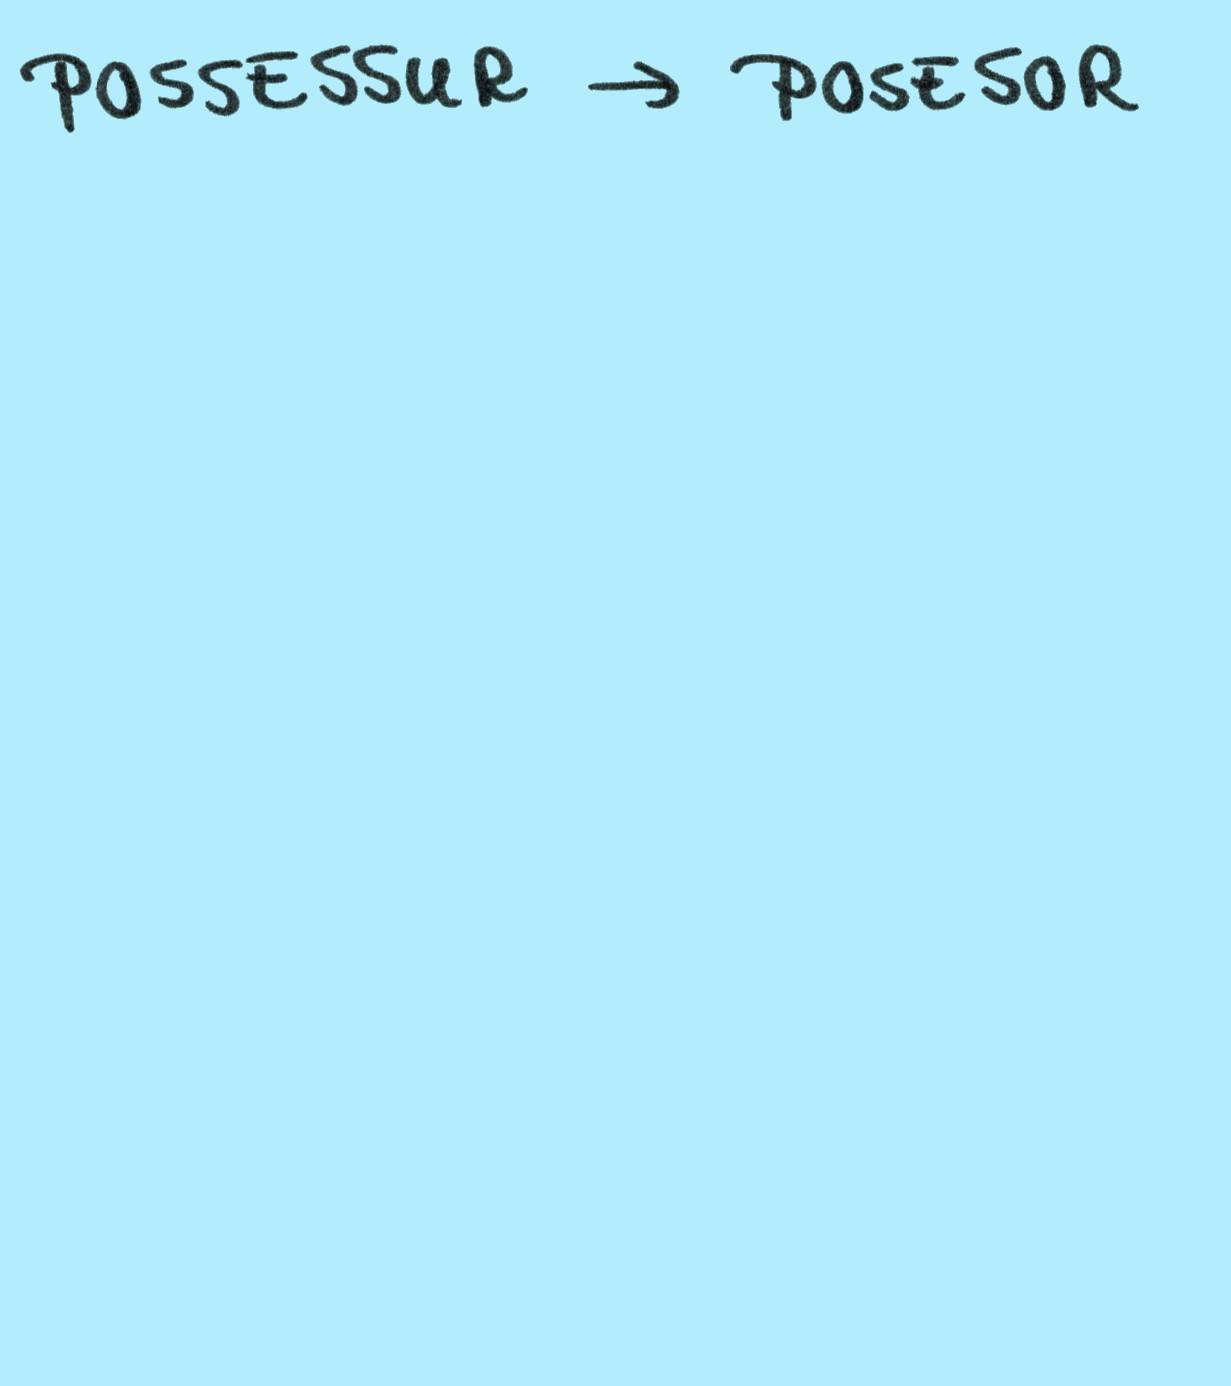 POSSESSUR → POSESOR